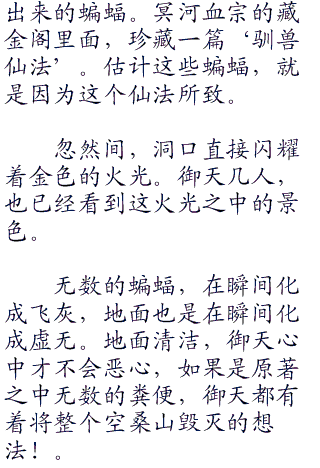 出来的蝙蝠。冥河血宗的藏
金阁里面，珍藏一篇‘驯兽
仙法’。估计这些蝙蝠，就
是因为这个仙法所致。
忽然间，洞口直接闪耀
着金色的火光。御天几人，
也已经看到这火光之中的景
色。
无数的蝙蝠，在瞬间化
成飞灰，地面也是在瞬间化
成虚无。地面清洁，御天心
中才不会恶心，如果是原著
之中无数的粪便，御天都有
着将整个空桑山毁灭的想
法！。